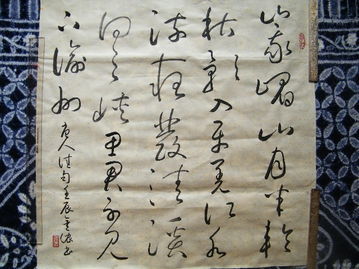 峩嵋山月半輪
秋影入平羌江水
流夜發清溪
向三峡思君不見
下渝州 唐人诗句壬辰书